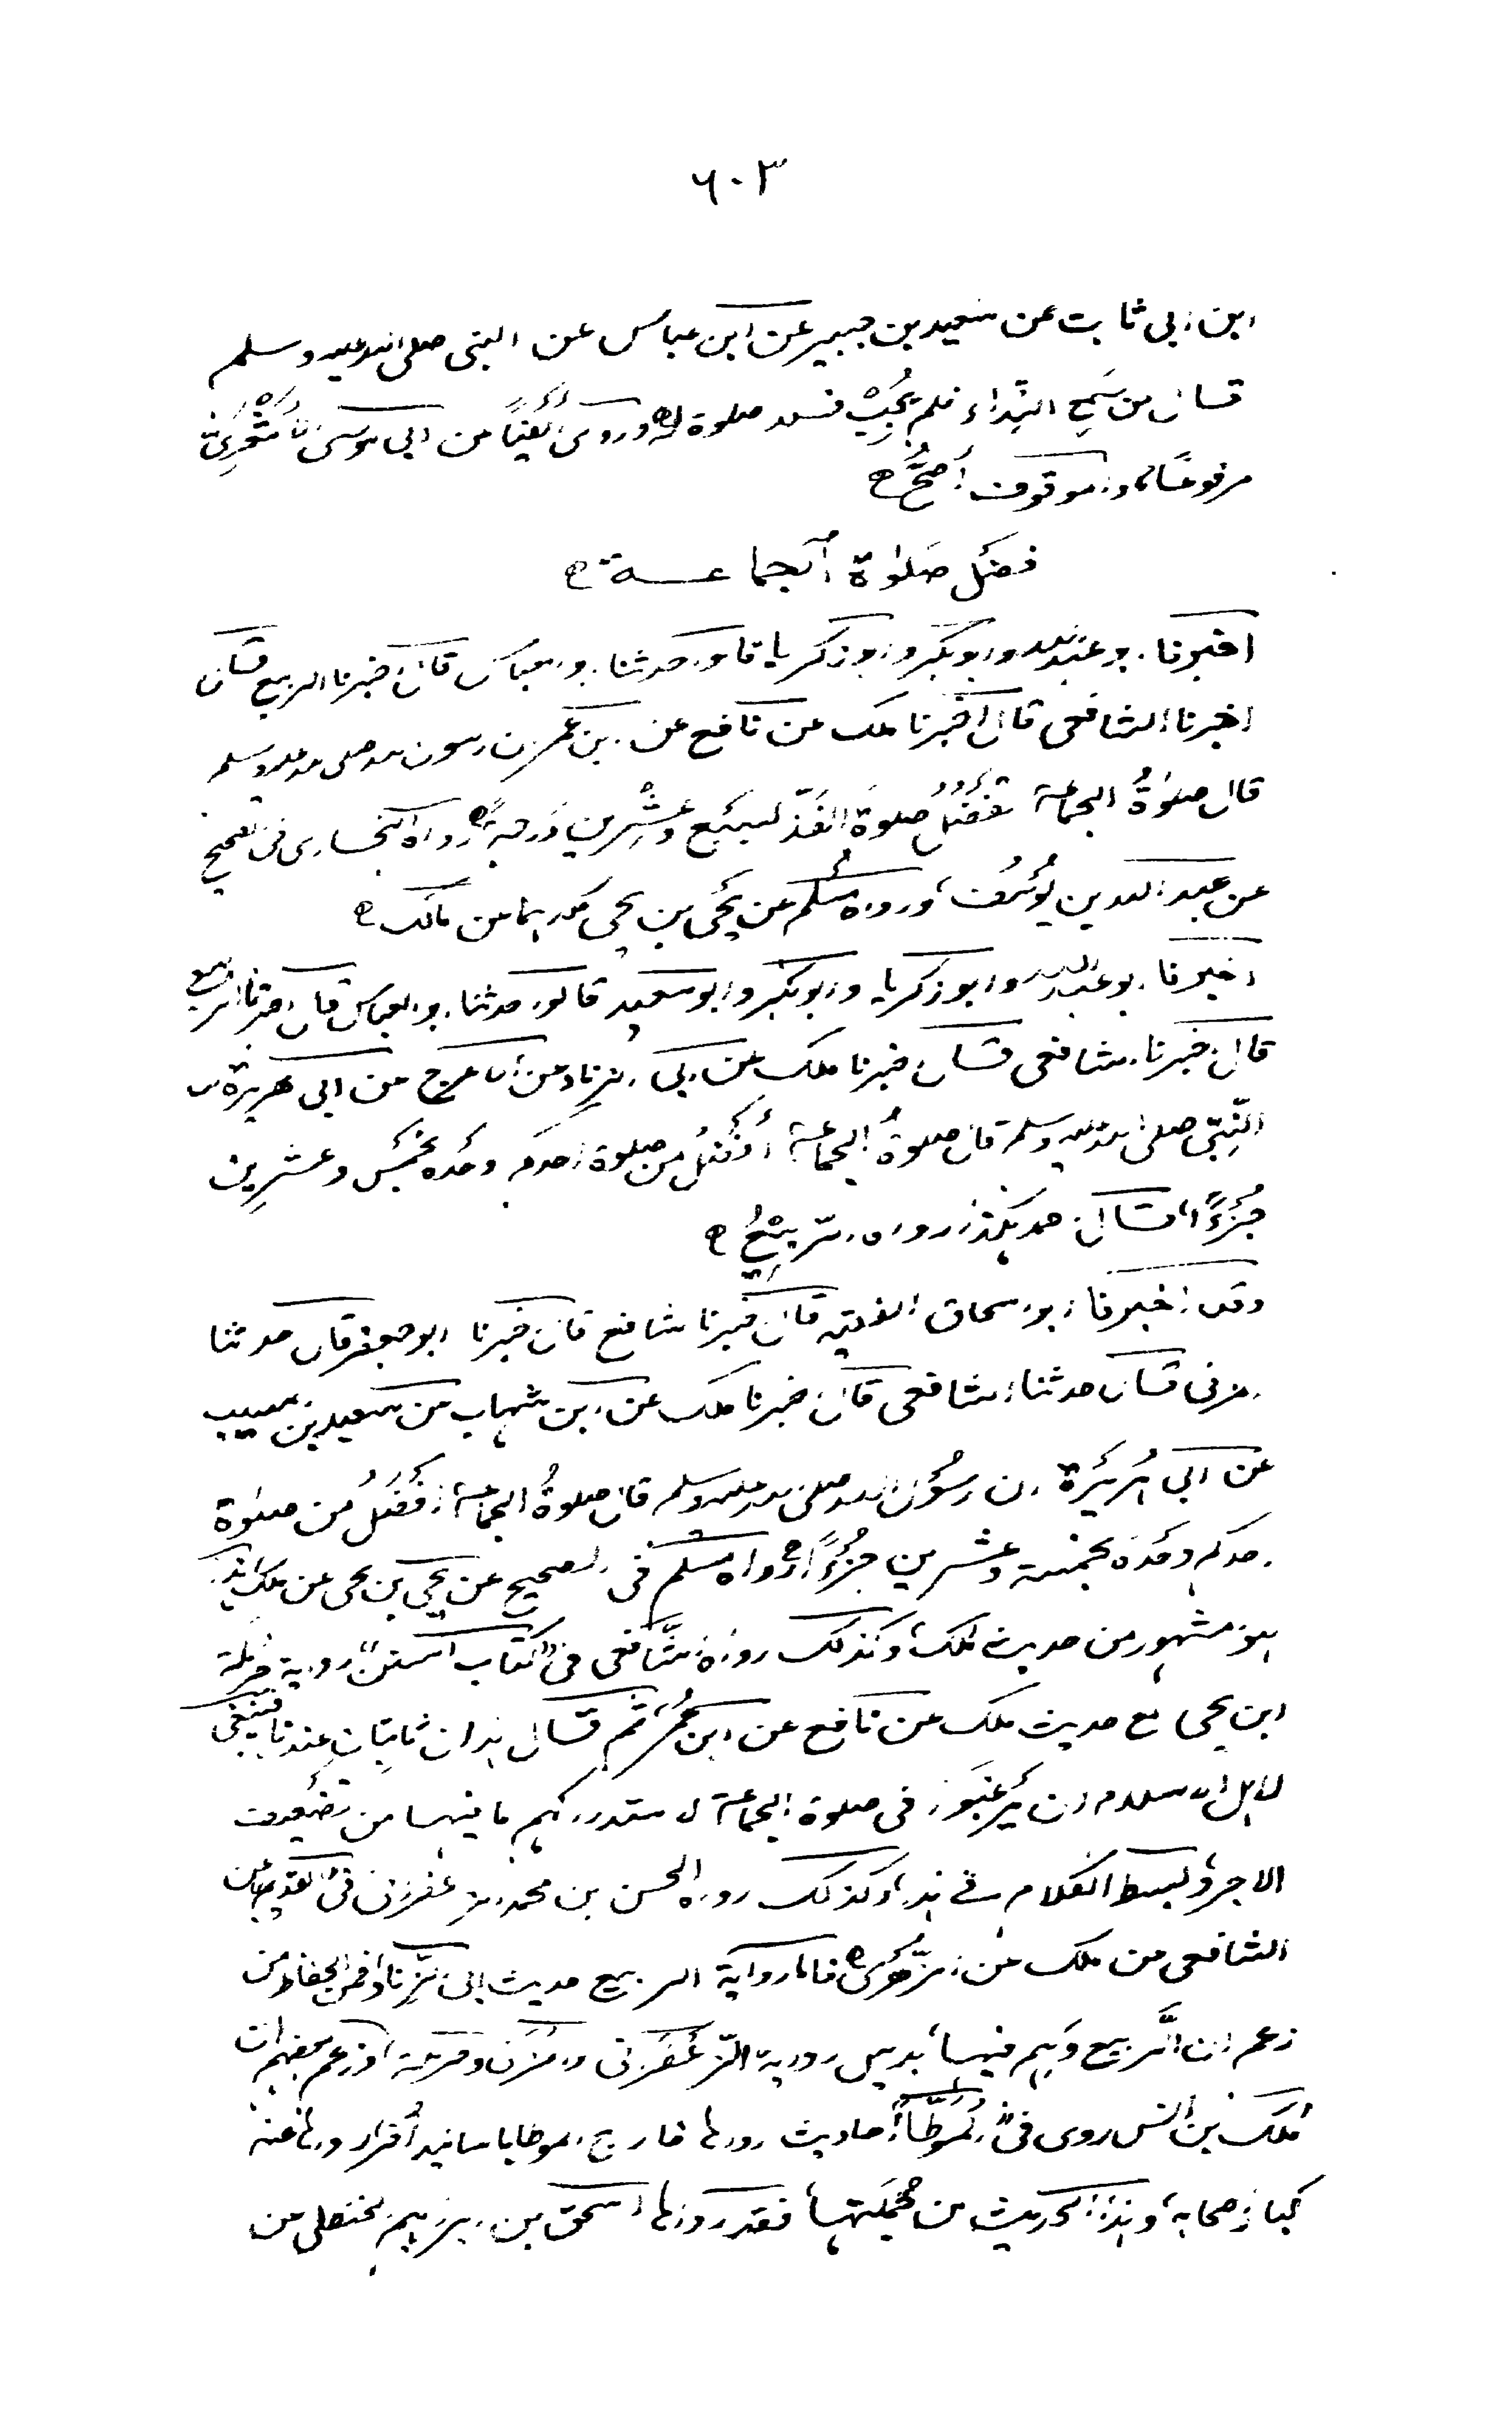 ٦٠٣
ابن ابی ثابت عن سعید بن جبیر عن ابن عباس عن النبی صلی الله علیه وسلم
قال من سَمِعَ النِّداء فلم یُجِبْ فلا صلوة له وروی اَیضًا عن ابی موسی الأَشْعَرِیّ
مرفوعًا، والموقوف أصَحُّ
فضل صَلوٰة الجماعــة
اخبرنا ابو عبد الله وابوبکر وابو زکریا قالوا حدثنا ابو العباس قال اخبرنا الربیع قال
اخبرنا الشافعی قال اخبرنا ملک عن نافع عن ابن عمر ان رسول الله صلی الله علیه وسلم
قال صلوٰةُ الجماعة تفضُلُ صَلوةَ الفَذّ لسبعٍ وعِشْرین دَرجةً رواه البخاری فی الصحیح
عن عبد الله بن یُوسُف، ورواه مُسْلم عن یَحْیی بن یحیی کلاهما عن مالک
اخبرنا ابو عبد الله وابو زکریا وابو بکر وابو سعید قالوا حدثنا ابو العباس قال اخبرنا الربیع
قال اخبرنا الشافعی قال اخبرنا ملک عن ابی الزناد عن الاعرج عن ابی هریرة ان
النَّبِیّ صلی الله علیه وسلم قال صلوةُ الجماعة اَفْضَلُ من صلوة احدکم وحْدَه بخَمْسٍ وعشرین
جُزْءًا، قال احمد هکذا رواه الرَّبِیْعُ
وقد اخبرنا ابو اسحاق الفقیه قال اخبرنا شافع قال اخبرنا ابو جعفر قال حدثنا
المزنی قال حدثنا الشافعی قال اخبرنا ملک عن ابن شهاب عن سعید بن المسیب
عن ابی هُرَیْرَةَ ان رسُوْل الله صلی الله علیه وسلم قال صلوةُ الجماعة اَفْضَلُ من صلوٰة
احدکم وحْدَه بخمسة وعشرین جُزْءًا رواه مسلم فی الصحیح عن یحیی بن یحیی عن ملک هذا
هو المشهور من حدیث ملک، وکذلک رواه الشَّافعی فی "کتاب السنن" روایة حَرْملة
ابن یحیی مع حدیث ملک عن نافع عن ابن عُمَر، ثم قال هذان ثابتان عندنا فینبغی
لاهل الاسلام ان یَرغَبُوا فی صلوة الجماعة لاستدراکهم ما فیها من تضعیف
الاجر، وبسط الکلام فی هذا، وکذلک رواه الحسن بن محمد الزعفرانی فی "القدیم" عن
الشافعی عن ملک عن الزُّهْرِیّ فاما روایة الربیع حدیث ابی الزِّناد فمن الحفاظ من
زعم ان الرَّبیع وَهِم فیها، بدلیل روایة الزَّعْفَرانی والمُزَنی وحرملة، وزعم بعضهم ان
مٰلک بن انس روی فی "المُوَطَّأ" احادیث رواها خارج الموطا باسانید اُخَر، ورواها عنه
کبار اصحابه، وهذا الحدیث من جُمْلَتِها، فقد رواها اسحق بن ابراهیم الحنظلی عن